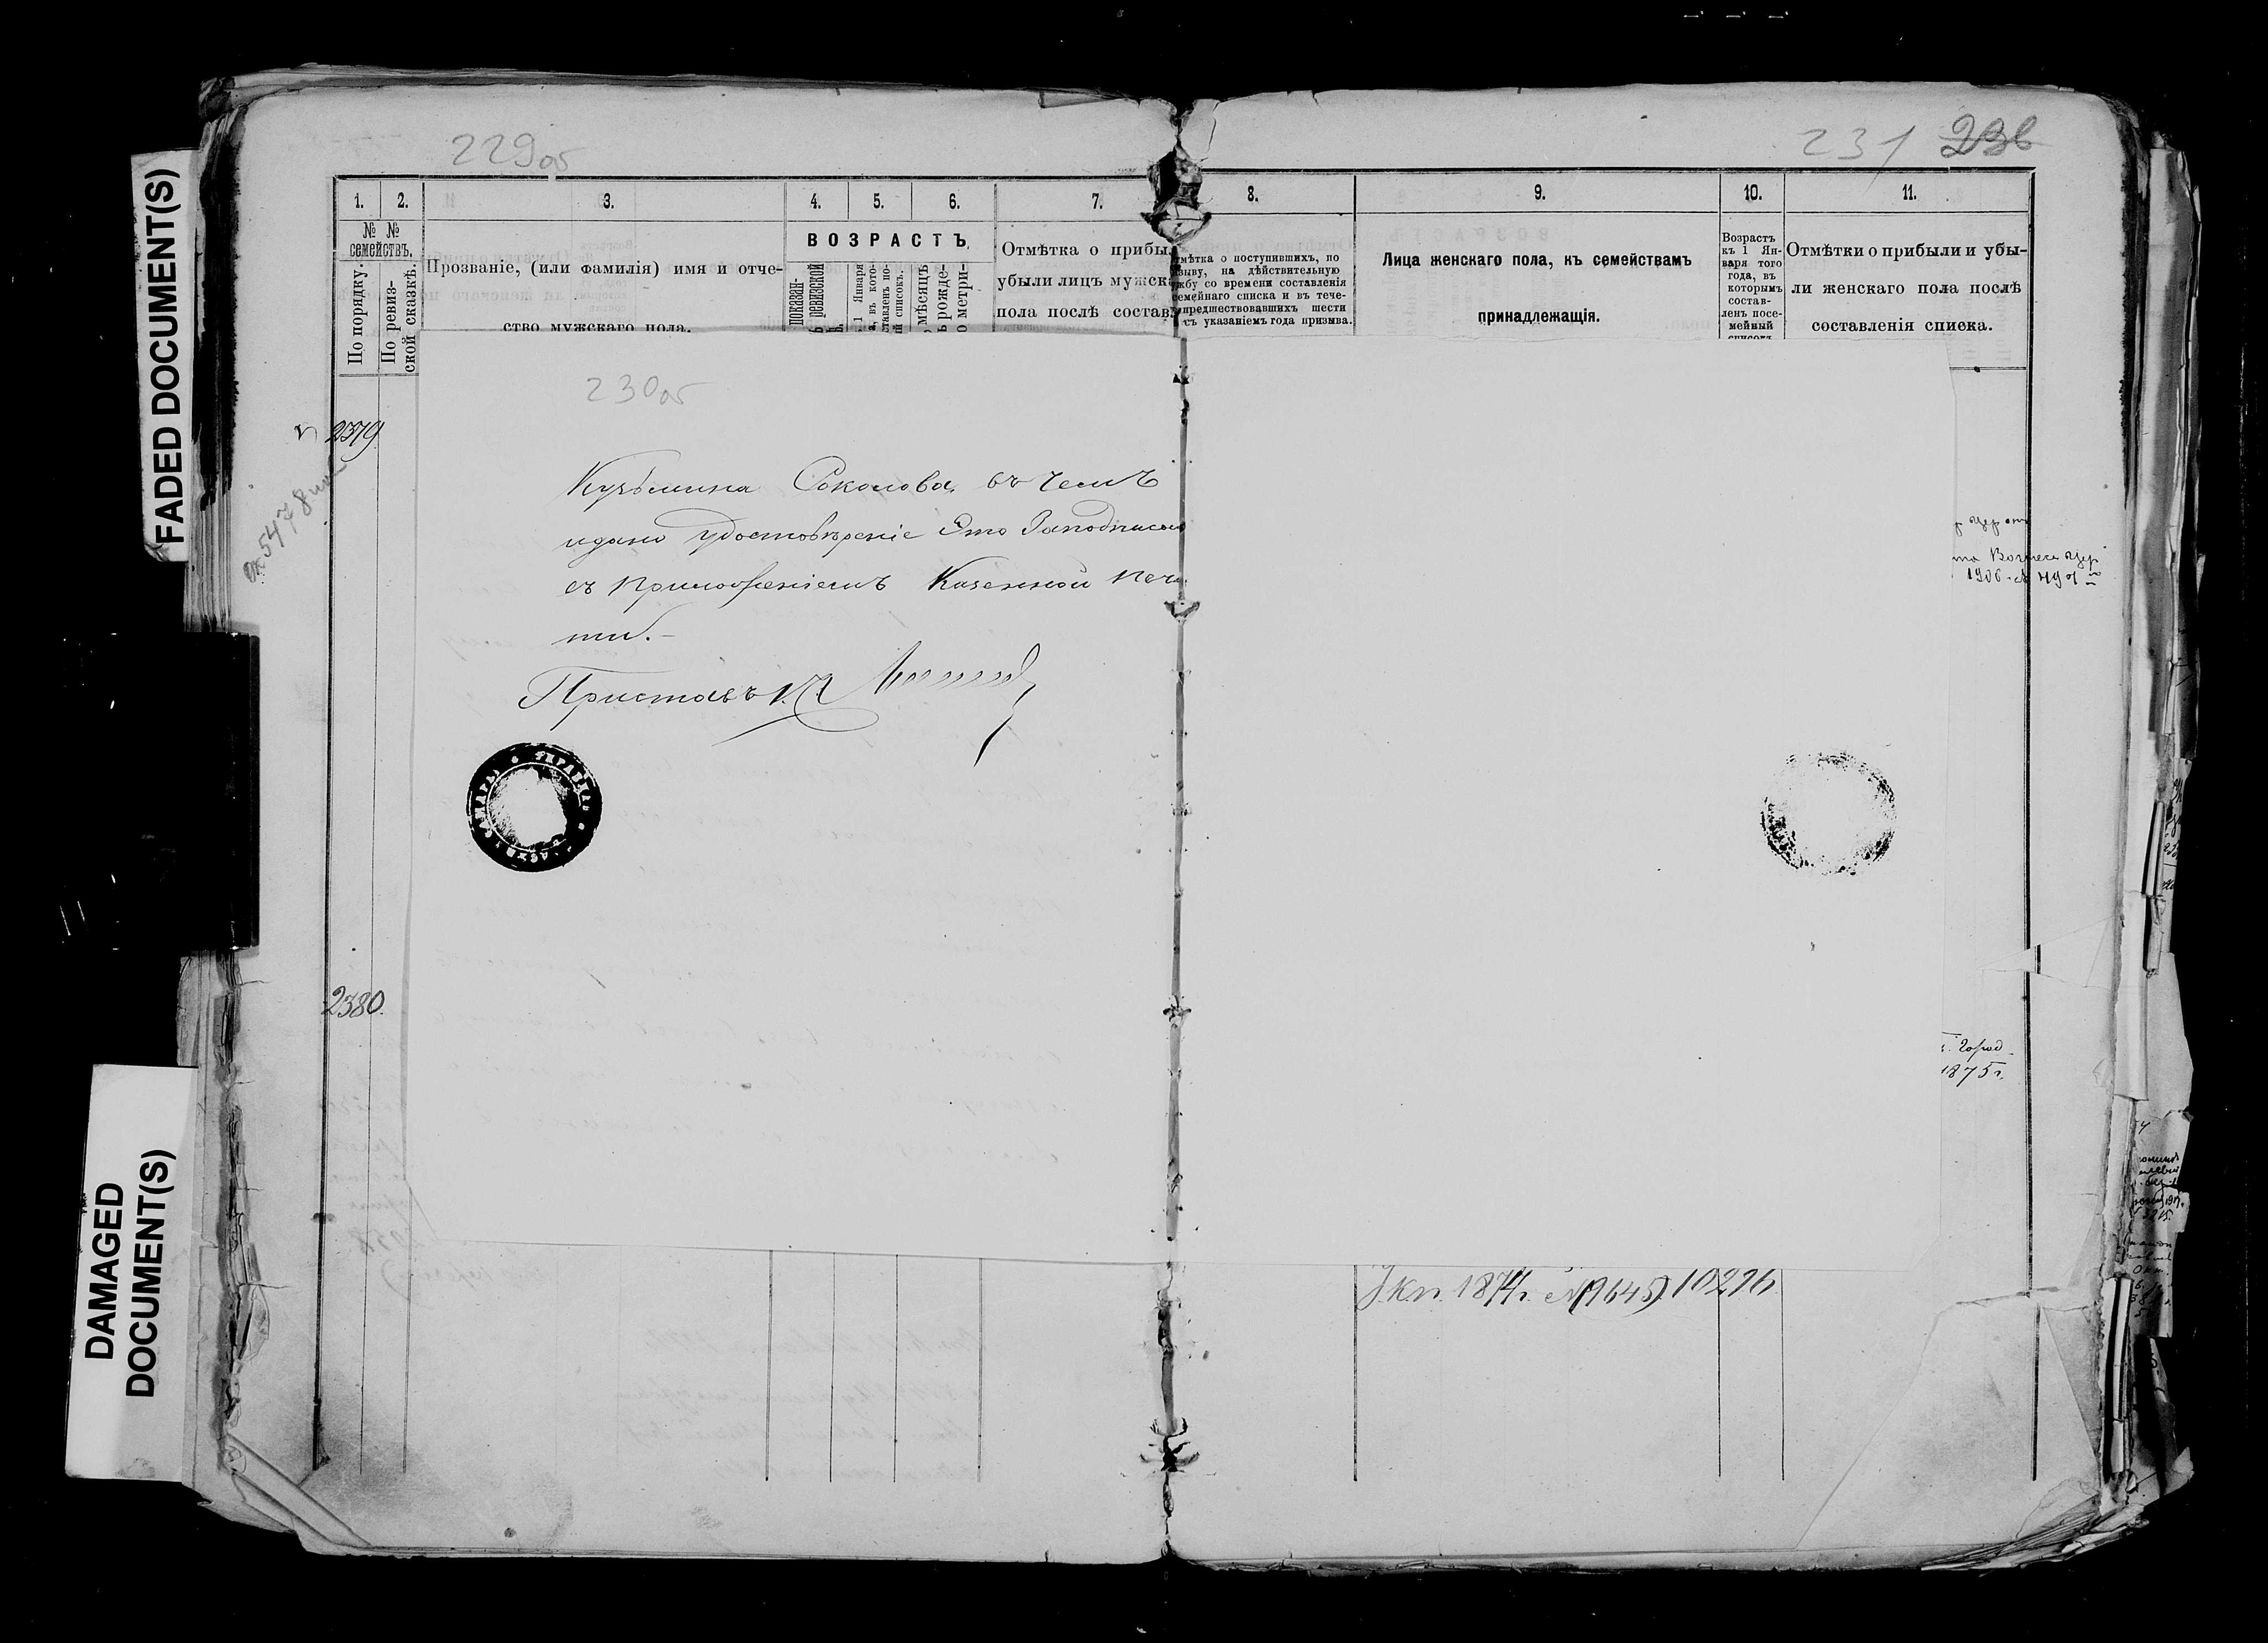 FADED DOCUMENT(S)
DAMAGED
DOCUMENT(S)
229об
231 236
1. 2. 3. 4. 5. 6. 7. 8. 9. 10. 11.
№ №
семействъ.
По порядку.
По ревиз-
ской сказкѣ.
Прозваніе, (или фамилія) имя и отче-
ство мужскаго пола.
ВОЗРАСТЪ
показан-
ревизской
1 Января
а, въ кото-
ставленъ по-
й списокъ.
мѣсяцъ
рожде-
о метри-
Отмѣтка о прибы
убыли лицъ мужск
пола послѣ состав
мѣтка о поступившихъ, по
зыву, на дѣйствительную
жбу со времени составленія
семейнаго списка и въ тече-
предшествовавшихъ шести
съ указаніемъ года призыва.
Лица женскаго пола, къ семействамъ
принадлежащія.
Возрастъ
къ 1 Ян-
варя того
года, въ
которымъ
состав-
ленъ посе-
мейный
списокъ
Отмѣтки о прибыли и убы-
ли женскаго пола послѣ
составленія списка.
230об
2379
5478
Кузьмина Соколова, въ чемъ
и дано удостовѣреніе Это Заподписью
съ приложеніемъ Казенной печа
ти.-
Приставъ
1906
2380.
Город
1875г.
1874г. №(9645) 10296